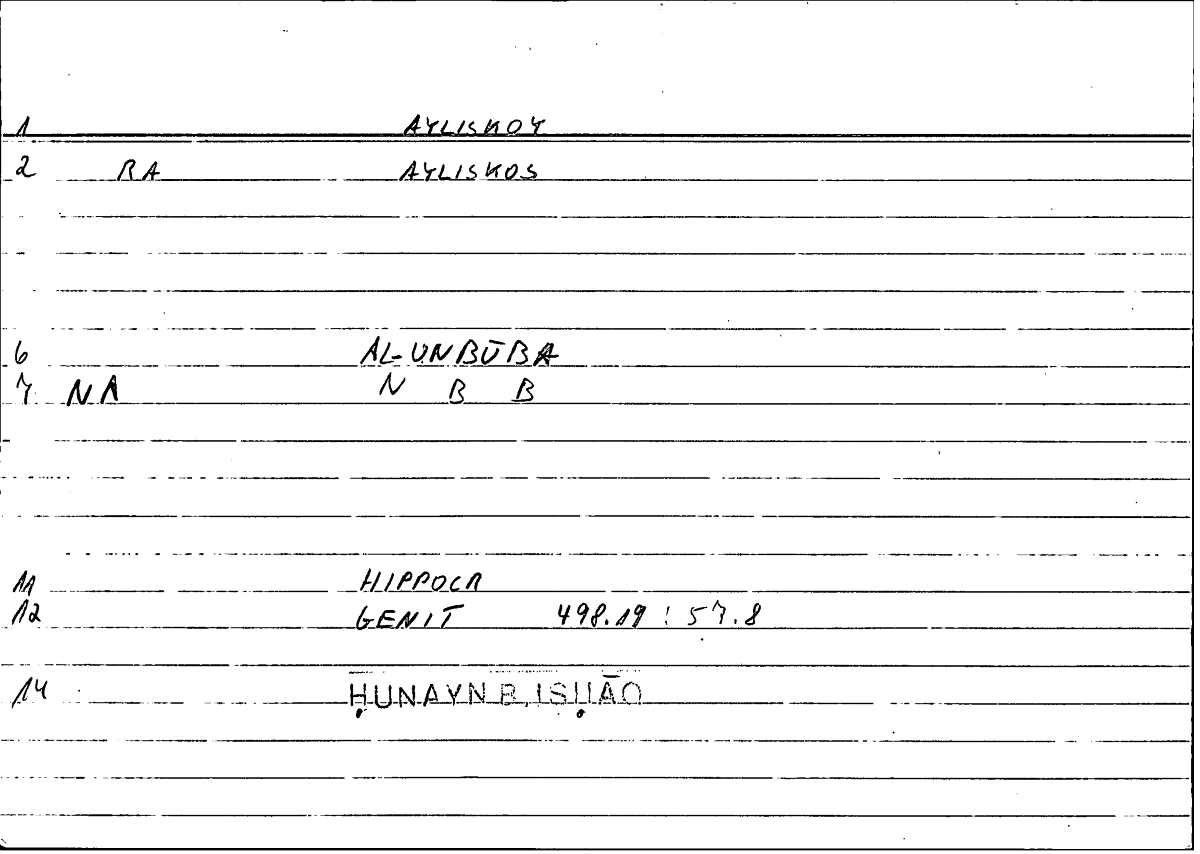 1 AYLISKOY
2 RA AYLISKOS
6 AL-UNBŪBA
7 NA N B B
11 HIPPOCR
12 GENIT 498.19 : 57.8
14 ḤUNAYN B. ISḤĀQ